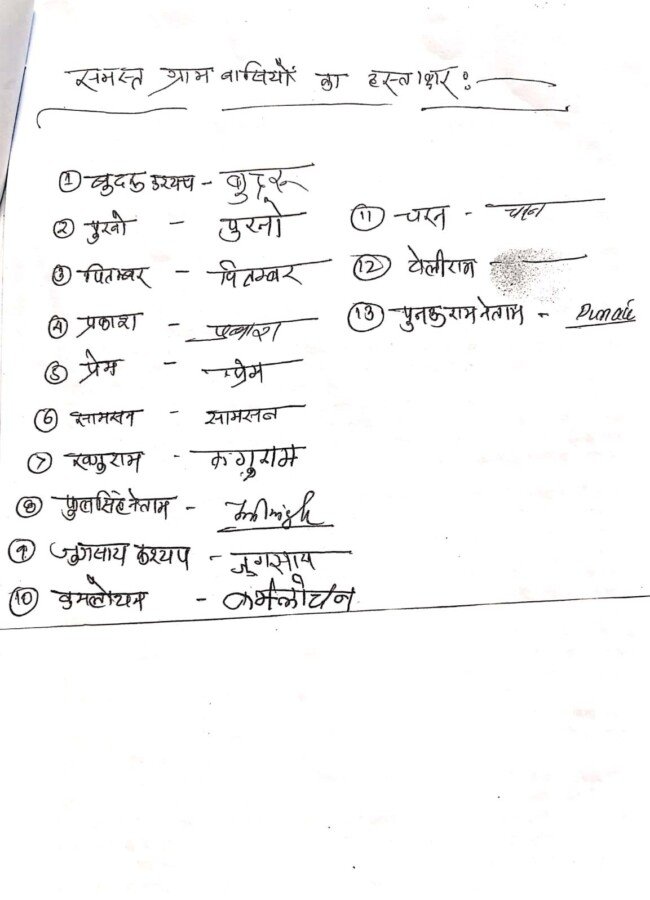 समस्त ग्राम वासियों का हस्ताक्षर :-
① बुदरु कश्यप - बुदरू
② पुरनो - पुरनो
③ पिताम्बर - पितम्बर
④ प्रकाश - प्रकाश
⑤ प्रेम - प्रेम
⑥ सामसन - सामसन
⑦ रूगुराम -
⑧ फुलसिंह नेताम -
⑨ जुगसाय कश्यप - जुगसाय
⑩ कमलोचन - कमलोचन
⑪ चरन -
⑫ चेलीराम -
⑬ पुनकुराम नेताम -